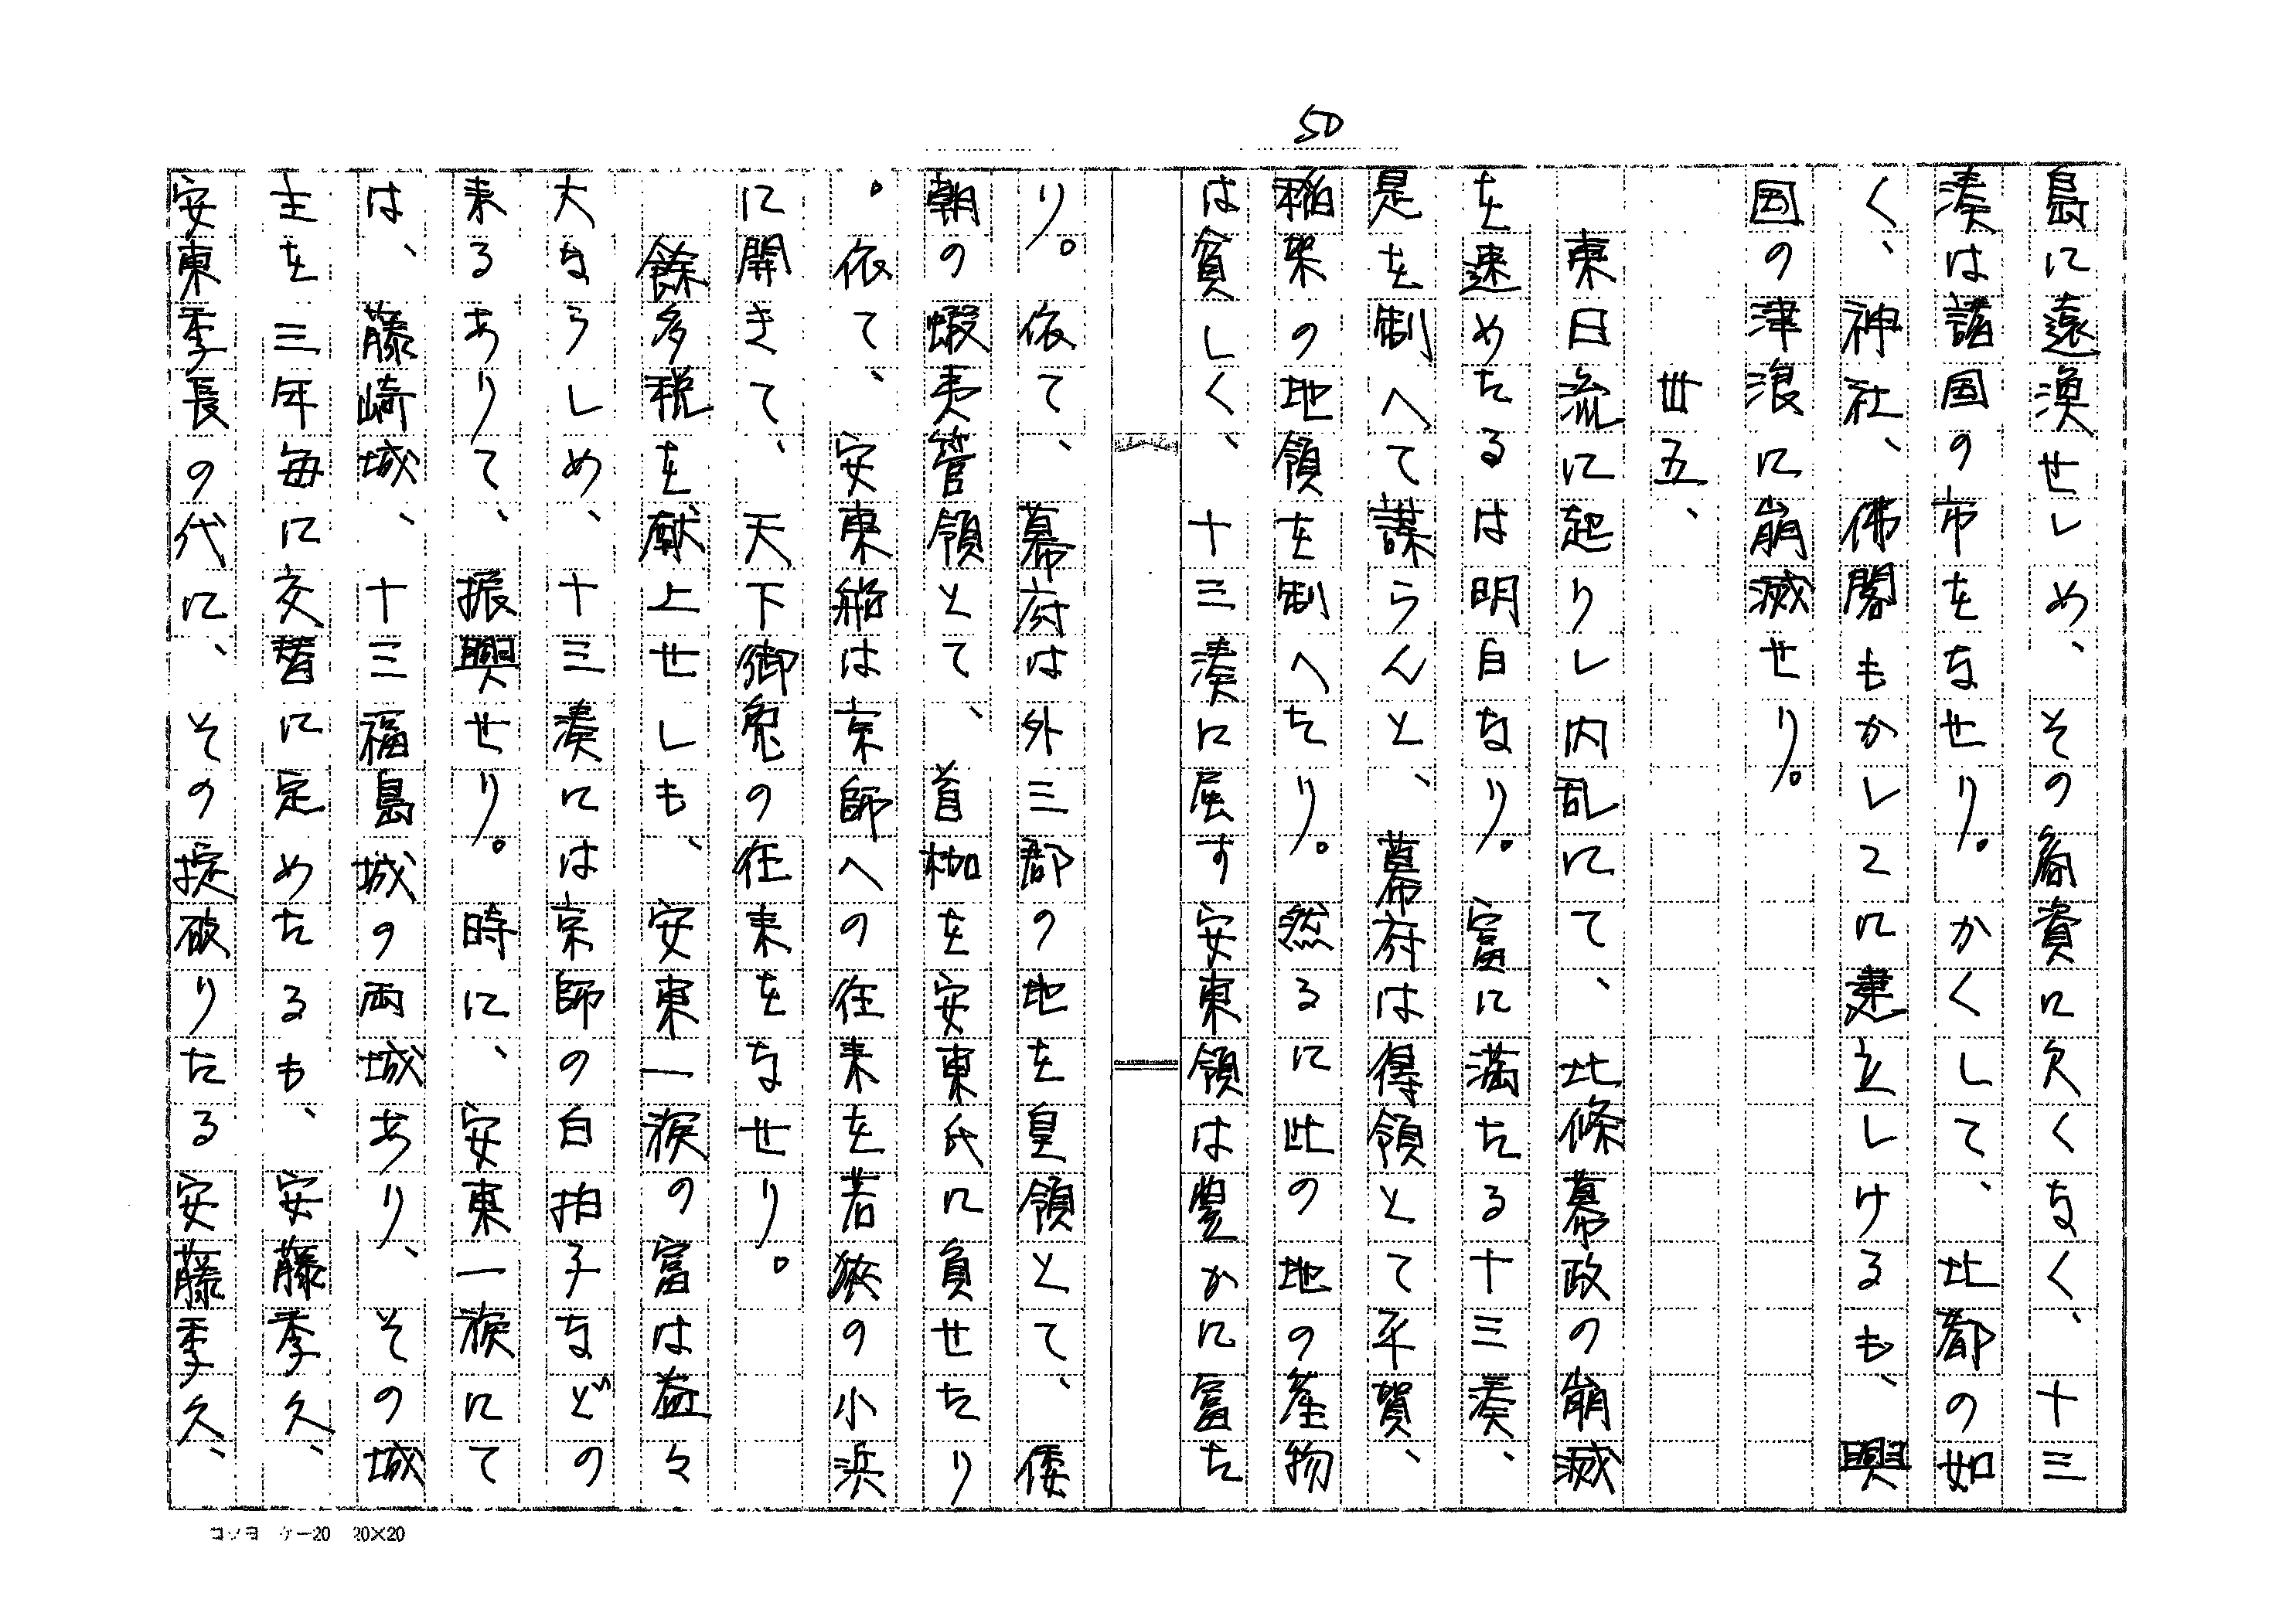 50
島に遠漁せしめ、その商資に欠くなく、十三
湊は諸国の市をなせり。かくして、此都の如
く、神社、佛閣もかしこに建立しけるも、興
国の津浪に崩滅せり。
丗五、
東日流に起りし内乱にて、北條幕政の崩滅
を速めたるは明白なり。富に満たる十三湊、
是を制へて謀らんと、幕府は得領として平賀、
稲架の地領を制へたり。然るに此の地の産物
は貧しく、十三湊に屈す安東領は豊かに富た
り。依て、幕府は外三郡の地を皇領として、倭
朝の蝦夷管領とて、首枷を安東氏に負せたり
。依て、安東船は京師への往来を若狹の小浜
に開きて、天下御免の往来をなせり。
餘多税を献上せしも、安東一族の富は益々
大ならしめ、十三湊には京師の白拍子などの
来るありて、振興せり。時に、安東一族にて
は、藤崎城、十三福島城の両城あり、その城
主を三年毎に交替に定めたるも、安藤季久、
安東季長の代に、その掟破りたる安藤季久、
コクヨ ケー20 20×20